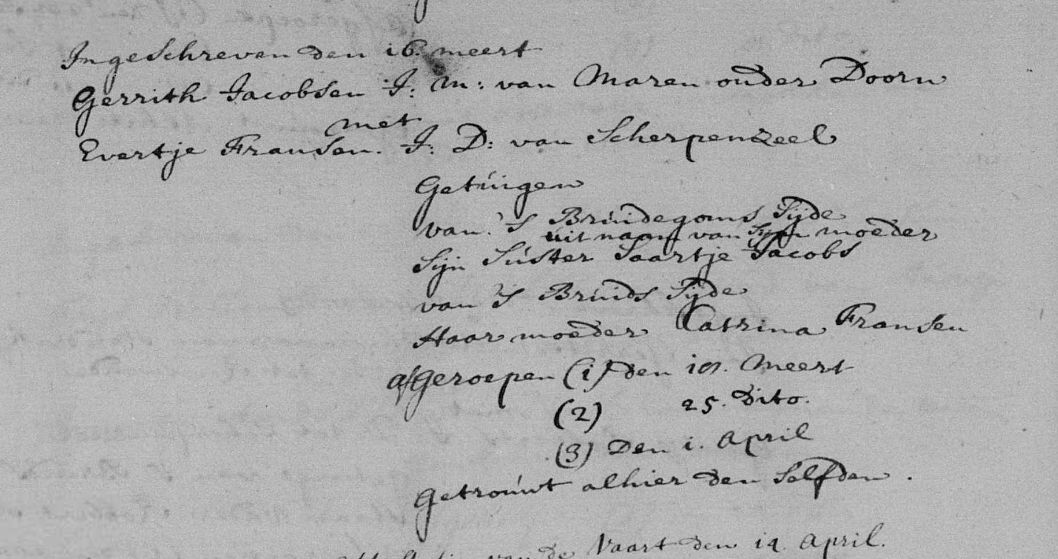 Ingeschreven den 16. meert
Gerrith Jacobsen J: M: van Maren onder Doorn
met
Evertje Fransen. J: D: van Scherpenzeel
Getuigen
van 'S Bruidegoms Sijde
uit naam van Sijn moeder
Sijn Suster Saartje Jacobs
van 'S Bruids Sijde
Haar moeder Catrina Fransen
afgeroepen (1) den 18. Meert
(2) 25. dito.
(3) Den 1. April
Getrouwt alhier den Selfden.
van de Vaart den 12 April.